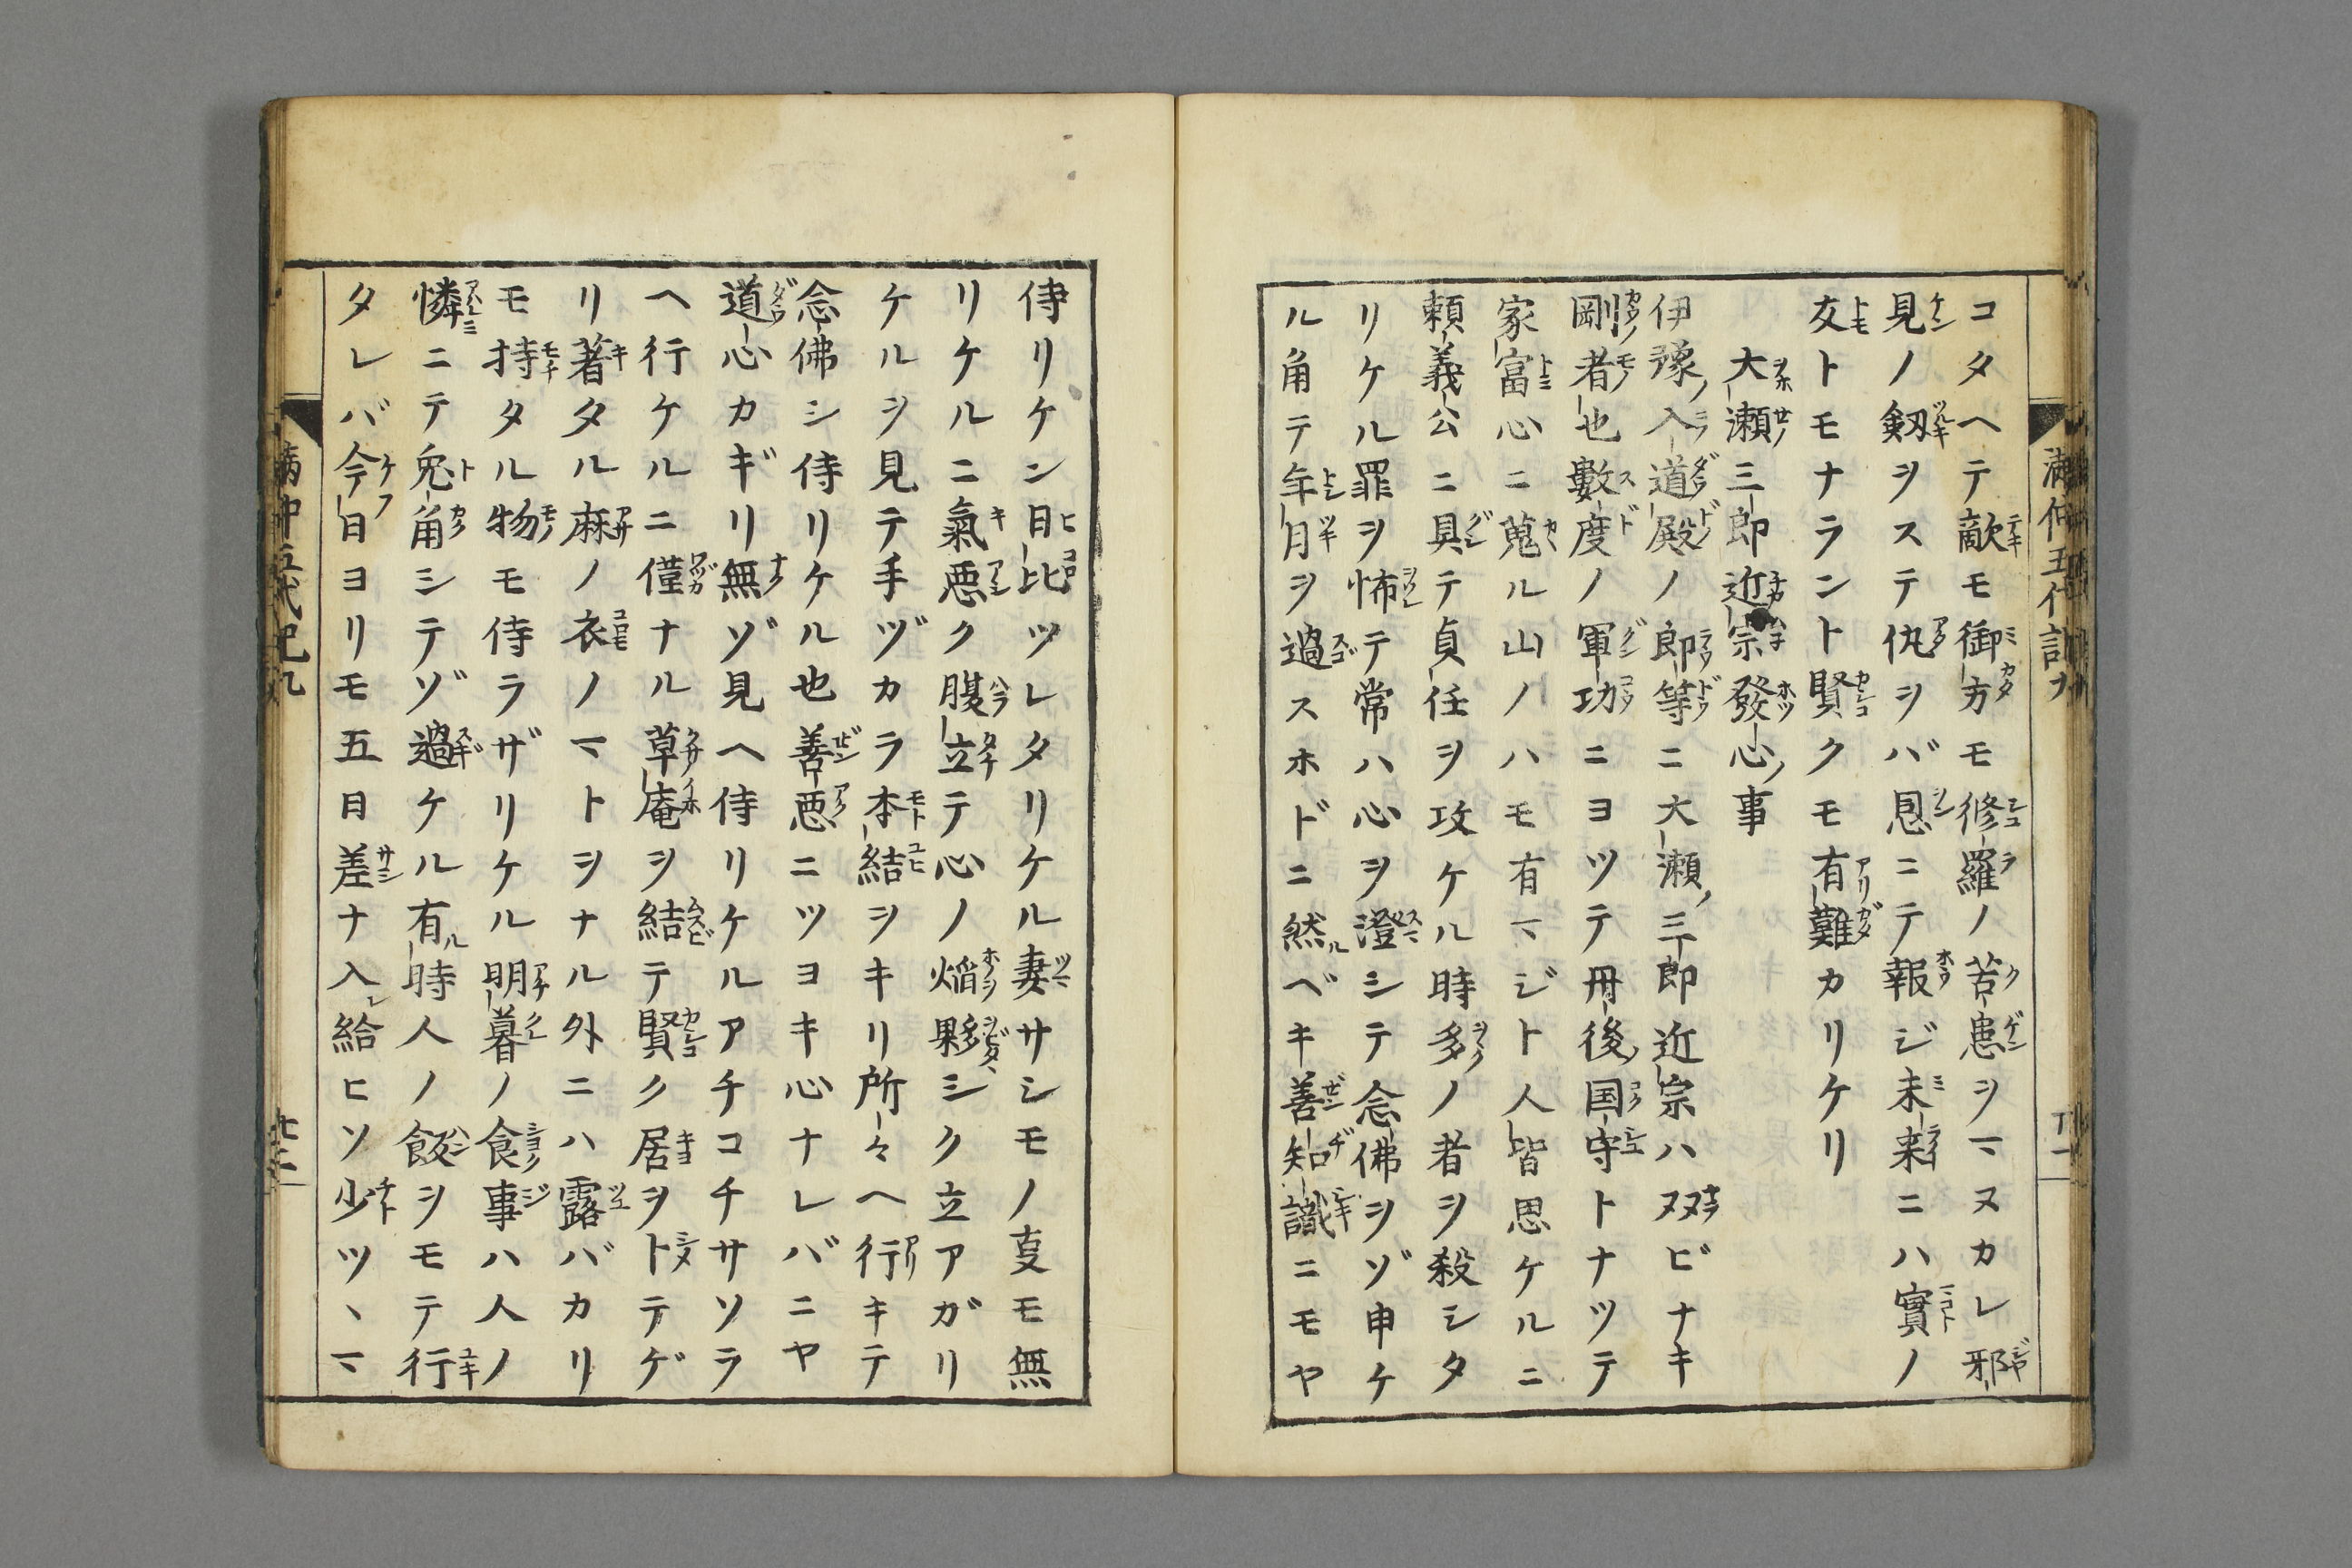 コタヘテ敵モ御方モ修羅ノ苦患ヲマヌカレ邪
見ノ剱ヲステ仇ヲバ恩ニテ報ジ未来ニハ實ノ
友トモナラント賢クモ有難カリケリ
大瀬三郎近宗發心ノ事
伊豫ノ入道殿ノ郎等ニ大瀬ノ三郎近宗ハ双ビナキ
剛者也數度ノ軍功ニヨツテ丹後ノ国守トナツテ
家富心ニ蒐ル山ノハモ有マジト人皆思ケルニ
頼義公ニ具テ貞任ヲ攻ケル時多ノ者ヲ殺シタ
リケル罪ヲ怖テ常ハ心ヲ澄シテ念佛ヲゾ申ケ
ル角テ年月ヲ過スホドニ然ルベキ善知識ニモヤ
侍リケン日比ツレタリケル妻サシモノ叓モ無
リケルニ氣悪ク腹立テ心ノ焔夥シク立アガリ
ケルヲ見テ手ヅカラ本結ヲキリ所々ヘ行キテ
念佛シ侍リケル也善悪ニツヨキ心ナレバニヤ
道心カギリ無ゾ見ヘ侍リケルアチコチサソラ
ヘ行ケルニ僅ナル草庵ヲ結テ賢ク居ヲトテゲ
リ著タル麻ノ衣ノマトヲナル外ニハ露バカリ
モ持タル物モ侍ラザリケル明暮ノ食事ハ人ノ
憐ニテ兎角シテゾ過ケル有ル時人ノ飯ヲモテ行
タレバ今日ヨリモ五日差ナ入レ給ヒソ少ツヽマ